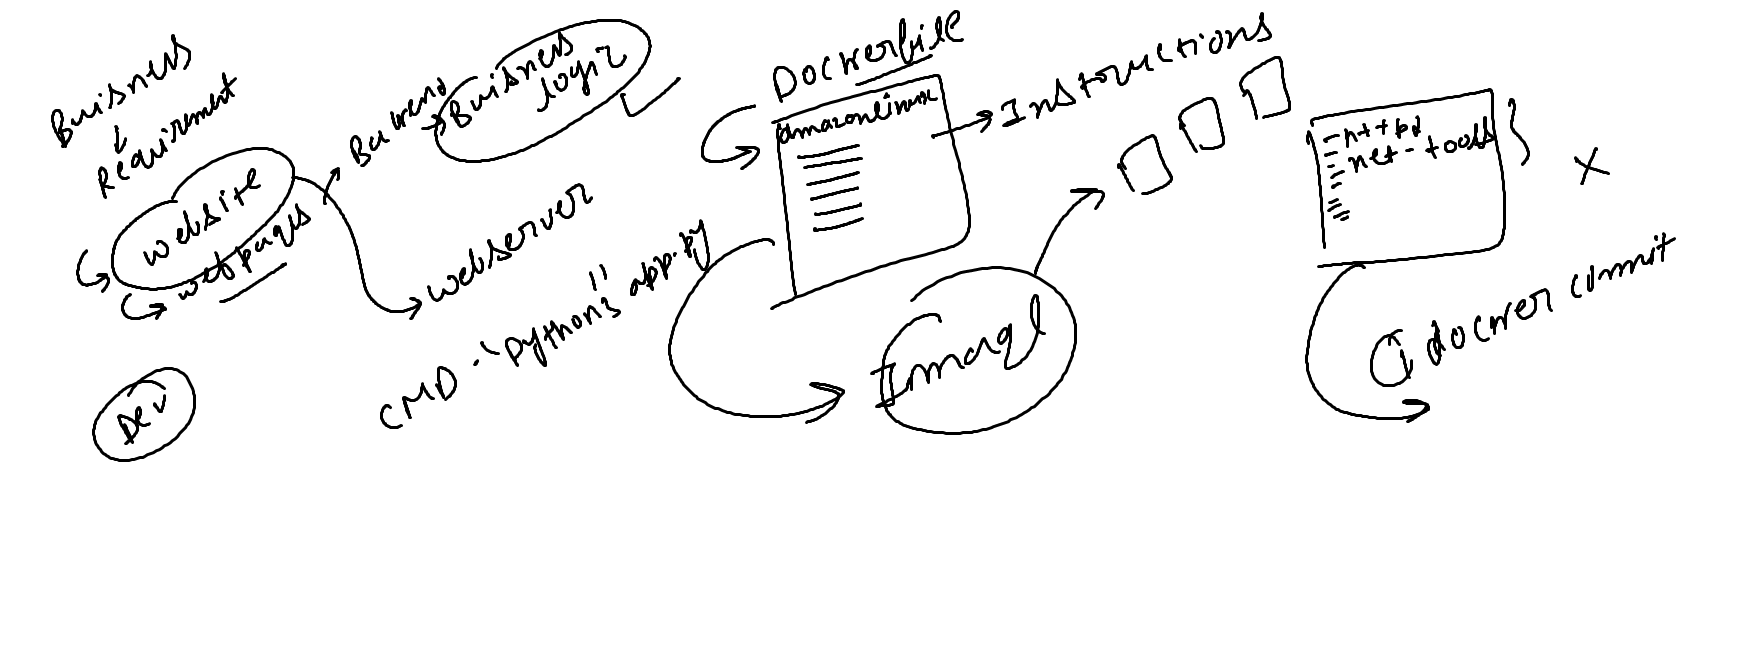 Buisness
Requirement
website
webpages
Dev
Backend
Buisness
logic
webserver
CMD - "Python3" app.py
Dockerfile
amazonlinux
Instructions
Image
httpd
net-tools
docker commit